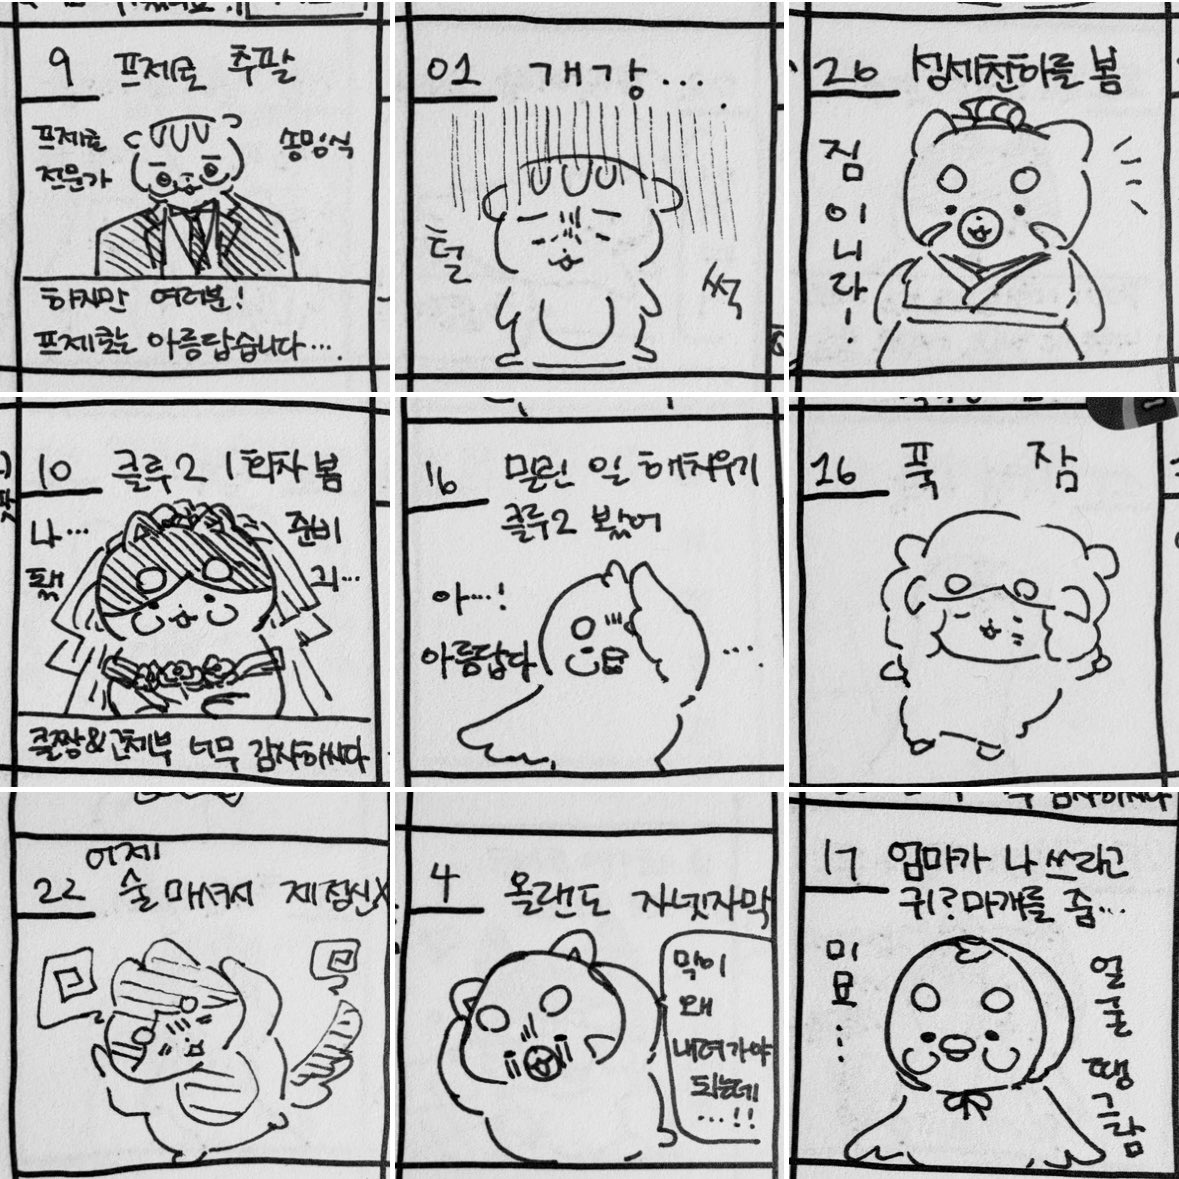 9 프제로 추팔
프제로
전문가
송밍식
하지만 여러분!
프제로는 아름답습니다....
01 개강...
털
썩
26 성세찬하를 봄
짐이니라!
10 클루2 1회차 봄
나...
준비
됐
긔...
클짱&군체부 너무 감사하시다
16 밀린 일 해치우기
클루2 봤어
아...!
아름답다
....
16 푹 잠
어제
22 술 마셔서 제정신X
4 올랜도 자넷자막
막이
왜
내려가야
되는데
...!!
17 엄마가 나 쓰라고
귀?마개를 줌...
미묘...
얼굴 땡그람